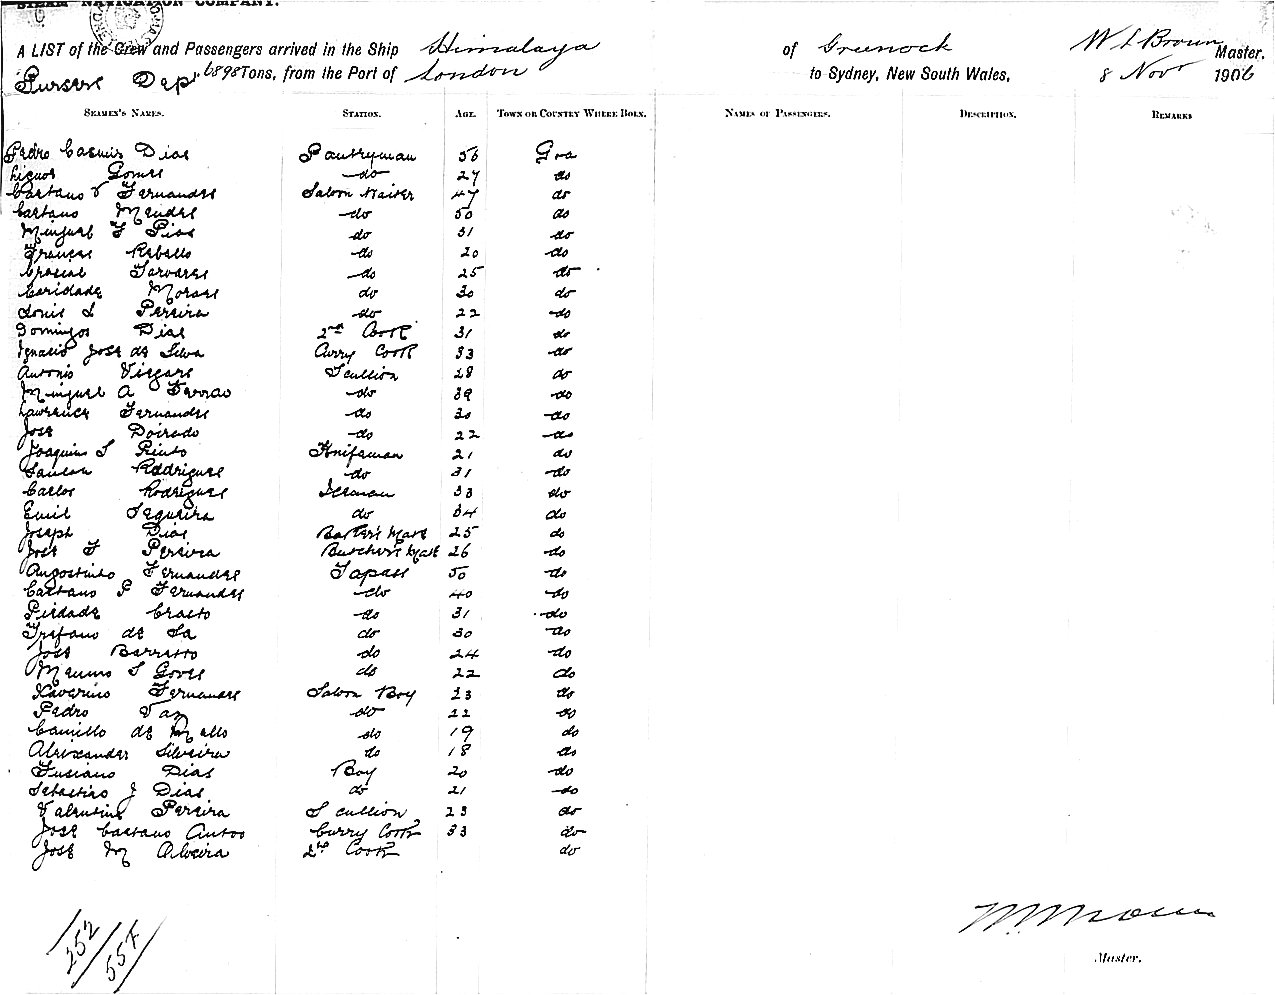 STEAM NAVIGATION COMPANY.
A LIST of the Crew and Passengers arrived in the Ship Himalaya of Greenock W L Brown Master.
Pursers Dept 6898 Tons, from the Port of London to Sydney, New South Wales, 8 Novr 1906
SEAMEN'S NAMES. STATION. AGE. TOWN OR COUNTRY WHERE BORN. NAMES OF PASSENGERS. DESCRIPTION. REMARKS
Pedro Casmir Dias Pantryman 56 Goa
Gomes do 27 do
Caetano Fernandes Saloon Waiter 47 do
Caetano Mendes do 50 do
Minguel F Pias do 31 do
Rebello do 20 do
Tavares do 25 do
Caridade Moraes do 30 do
Louis L Pereira do 22 do
Domingos Dias 2nd Cook 31 do
Ignacio Jose de Silva Curry Cook 33 do
Antonio Viegas Scullion 28 do
Minguel A Ferrao do 39 do
Lawrence Fernandes do 30 do
Jose Doirado do 22 do
Joaquim S Pinto Knifeman 21 do
Rodrigues do 31 do
Carlos Rodrigues Iceman 33 do
Emil Sequeira do 34 do
Joseph Dias Baker's Mate 25 do
Jose F Pereira Butcher's Mate 26 do
Angostinho Fernandes Topass 50 do
Caetano P Fernandes do 40 do
Piedade Crasto do 31 do
de Sa do 30 do
Jose Barretto do 24 do
S Goves do 22 do
Xaverino Fernandes Saloon Boy 23 do
Pedro Vaz do 22 do
Camillo de Mello do 19 do
Alexander Silveira do 18 do
Dias Boy 20 do
Sebastiao J Dias do 21 do
Valentine Pereira Scullion 23 do
Jose Caetano Curry Cook 33 do
Jose M Oliveira 2nd Cook do
252/557
W L Brown
Master.